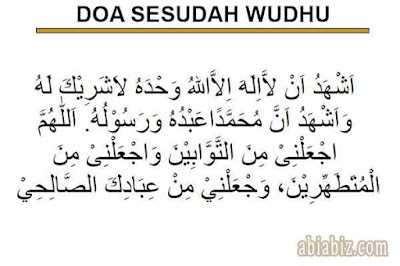 DOA SESUDAH WUDHU
اَشْهَدُ اَنْ لاَّاِلَهَ اِلاَّاللهُ وَحْدَهُ لاَشَرِيْكَ لَهُ
وَاَشْهَدُ اَنَّ مُحَمَّدًاعَبْدُهُ وَرَسُوْلُهُ. اَللّٰهُمَّ
اجْعَلْنِىْ مِنَ التَّوَّابِيْنَ وَاجْعَلْنِىْ مِنَ
الْمُتَطَهِّرِيْنَ، وَجْعَلْنِيْ مِنْ عِبَادِكَ الصَّالِحِيْ
abiabiz.com